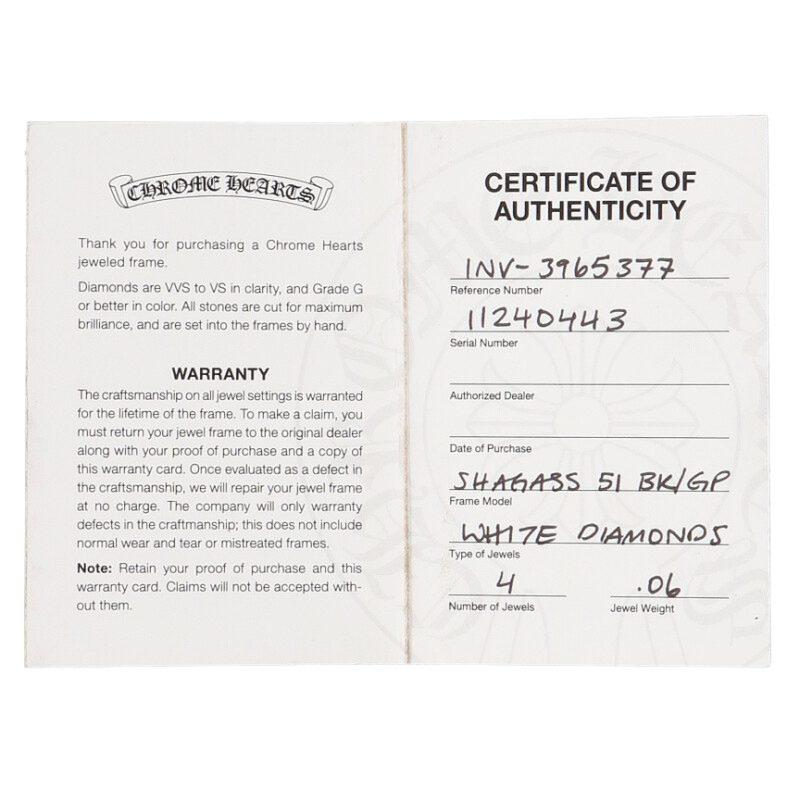 CHROME HEARTS
Thank you for purchasing a Chrome Hearts
jeweled frame.
Diamonds are VVS to VS in clarity, and Grade G
or better in color. All stones are cut for maximum
brilliance, and are set into the frames by hand.
WARRANTY
The craftsmanship on all jewel settings is warranted
for the lifetime of the frame. To make a claim, you
must return your jewel frame to the original dealer
along with your proof of purchase and a copy of
this warranty card. Once evaluated as a defect in
the craftsmanship, we will repair your jewel frame
at no charge. The company will only warranty
defects in the craftmanship; this does not include
normal wear and tear or mistreated frames.
Note: Retain your proof of purchase and this
warranty card. Claims will not be accepted with-
out them.
CERTIFICATE OF
AUTHENTICITY
INV-3965377
Reference Number
11240443
Serial Number
Authorized Dealer
Date of Purchase
SHAGASS 51 BK/GP
Frame Model
WHITE DIAMONDS
Type of Jewels
4 .06
Number of Jewels Jewel Weight